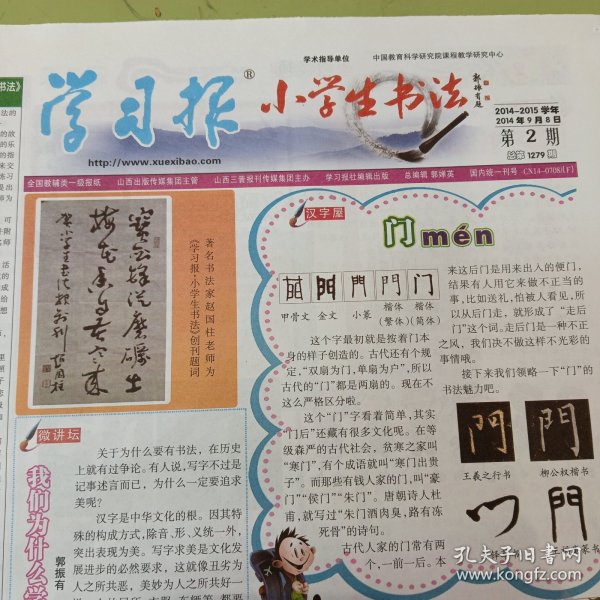 学术指导单位 中国教育科学研究院课程教学研究中心
学习报®
小学生书法
郭振有题
2014-2015 学年
2014 年 9 月 8 日
第 2 期
总第 1279 期
http://www.xuexibao.com
全国教辅类一级报纸 山西出版传媒集团主管 山西三晋报刊传媒集团主办 学习报社编辑出版 总编辑 郭婵英 国内统一刊号 CN14-0708/(F)
宝剑锋从磨砺出
梅花香自苦寒来
贺小学生书法报创刊
赵国柱
著名书法家赵国柱老师为
《学习报·小学生书法》创刊题词
微讲坛
我们为什么学
郭振有
关于为什么要有书法，在历史
上就有过争论。有人说，写字不过是
记事述言而已，为什么一定要追求
美呢？
汉字是中华文化的根。因其特
殊的构成方式，除音、形、义统一外，
突出表现为美。写字求美是文化发
展进步的必然要求，这就像丑劣为
人之所共恶，美妙为人之所共好一
汉字屋
门 mén
甲骨文 金文 小篆 楷体(繁体) 楷体(简体)
这个字最初就是按着门本
身的样子创造的。古代还有个规
定，“双扇为门，单扇为户”，所以
古代的“门”都是两扇的。现在不
这么严格区分啦。
这个“门”字看着简单，其实
“门后”还藏有很多文化呢。在等
级森严的古代社会，贫寒之家叫
“寒门”，有个成语就叫“寒门出贵
子”。而那些有钱人家的门，叫“豪
门”“侯门”“朱门”。唐朝诗人杜
甫，就写过“朱门酒肉臭，路有冻
死骨”的诗句。
古代人家的门常有两
个，一前一后。本
来这后门是用来出人的便门，
结果有人用它来做不正当的
事，比如送礼，怕被人看见，所
以从后门走，就形成了“走后
门”这个词。走后门是一种不正
之风，我们决不做这样不光彩的
事情哦。
接下来我们领略一下“门”的
书法魅力吧。
王羲之行书 柳公权楷书
孔夫子旧书网
www.kongfz.com